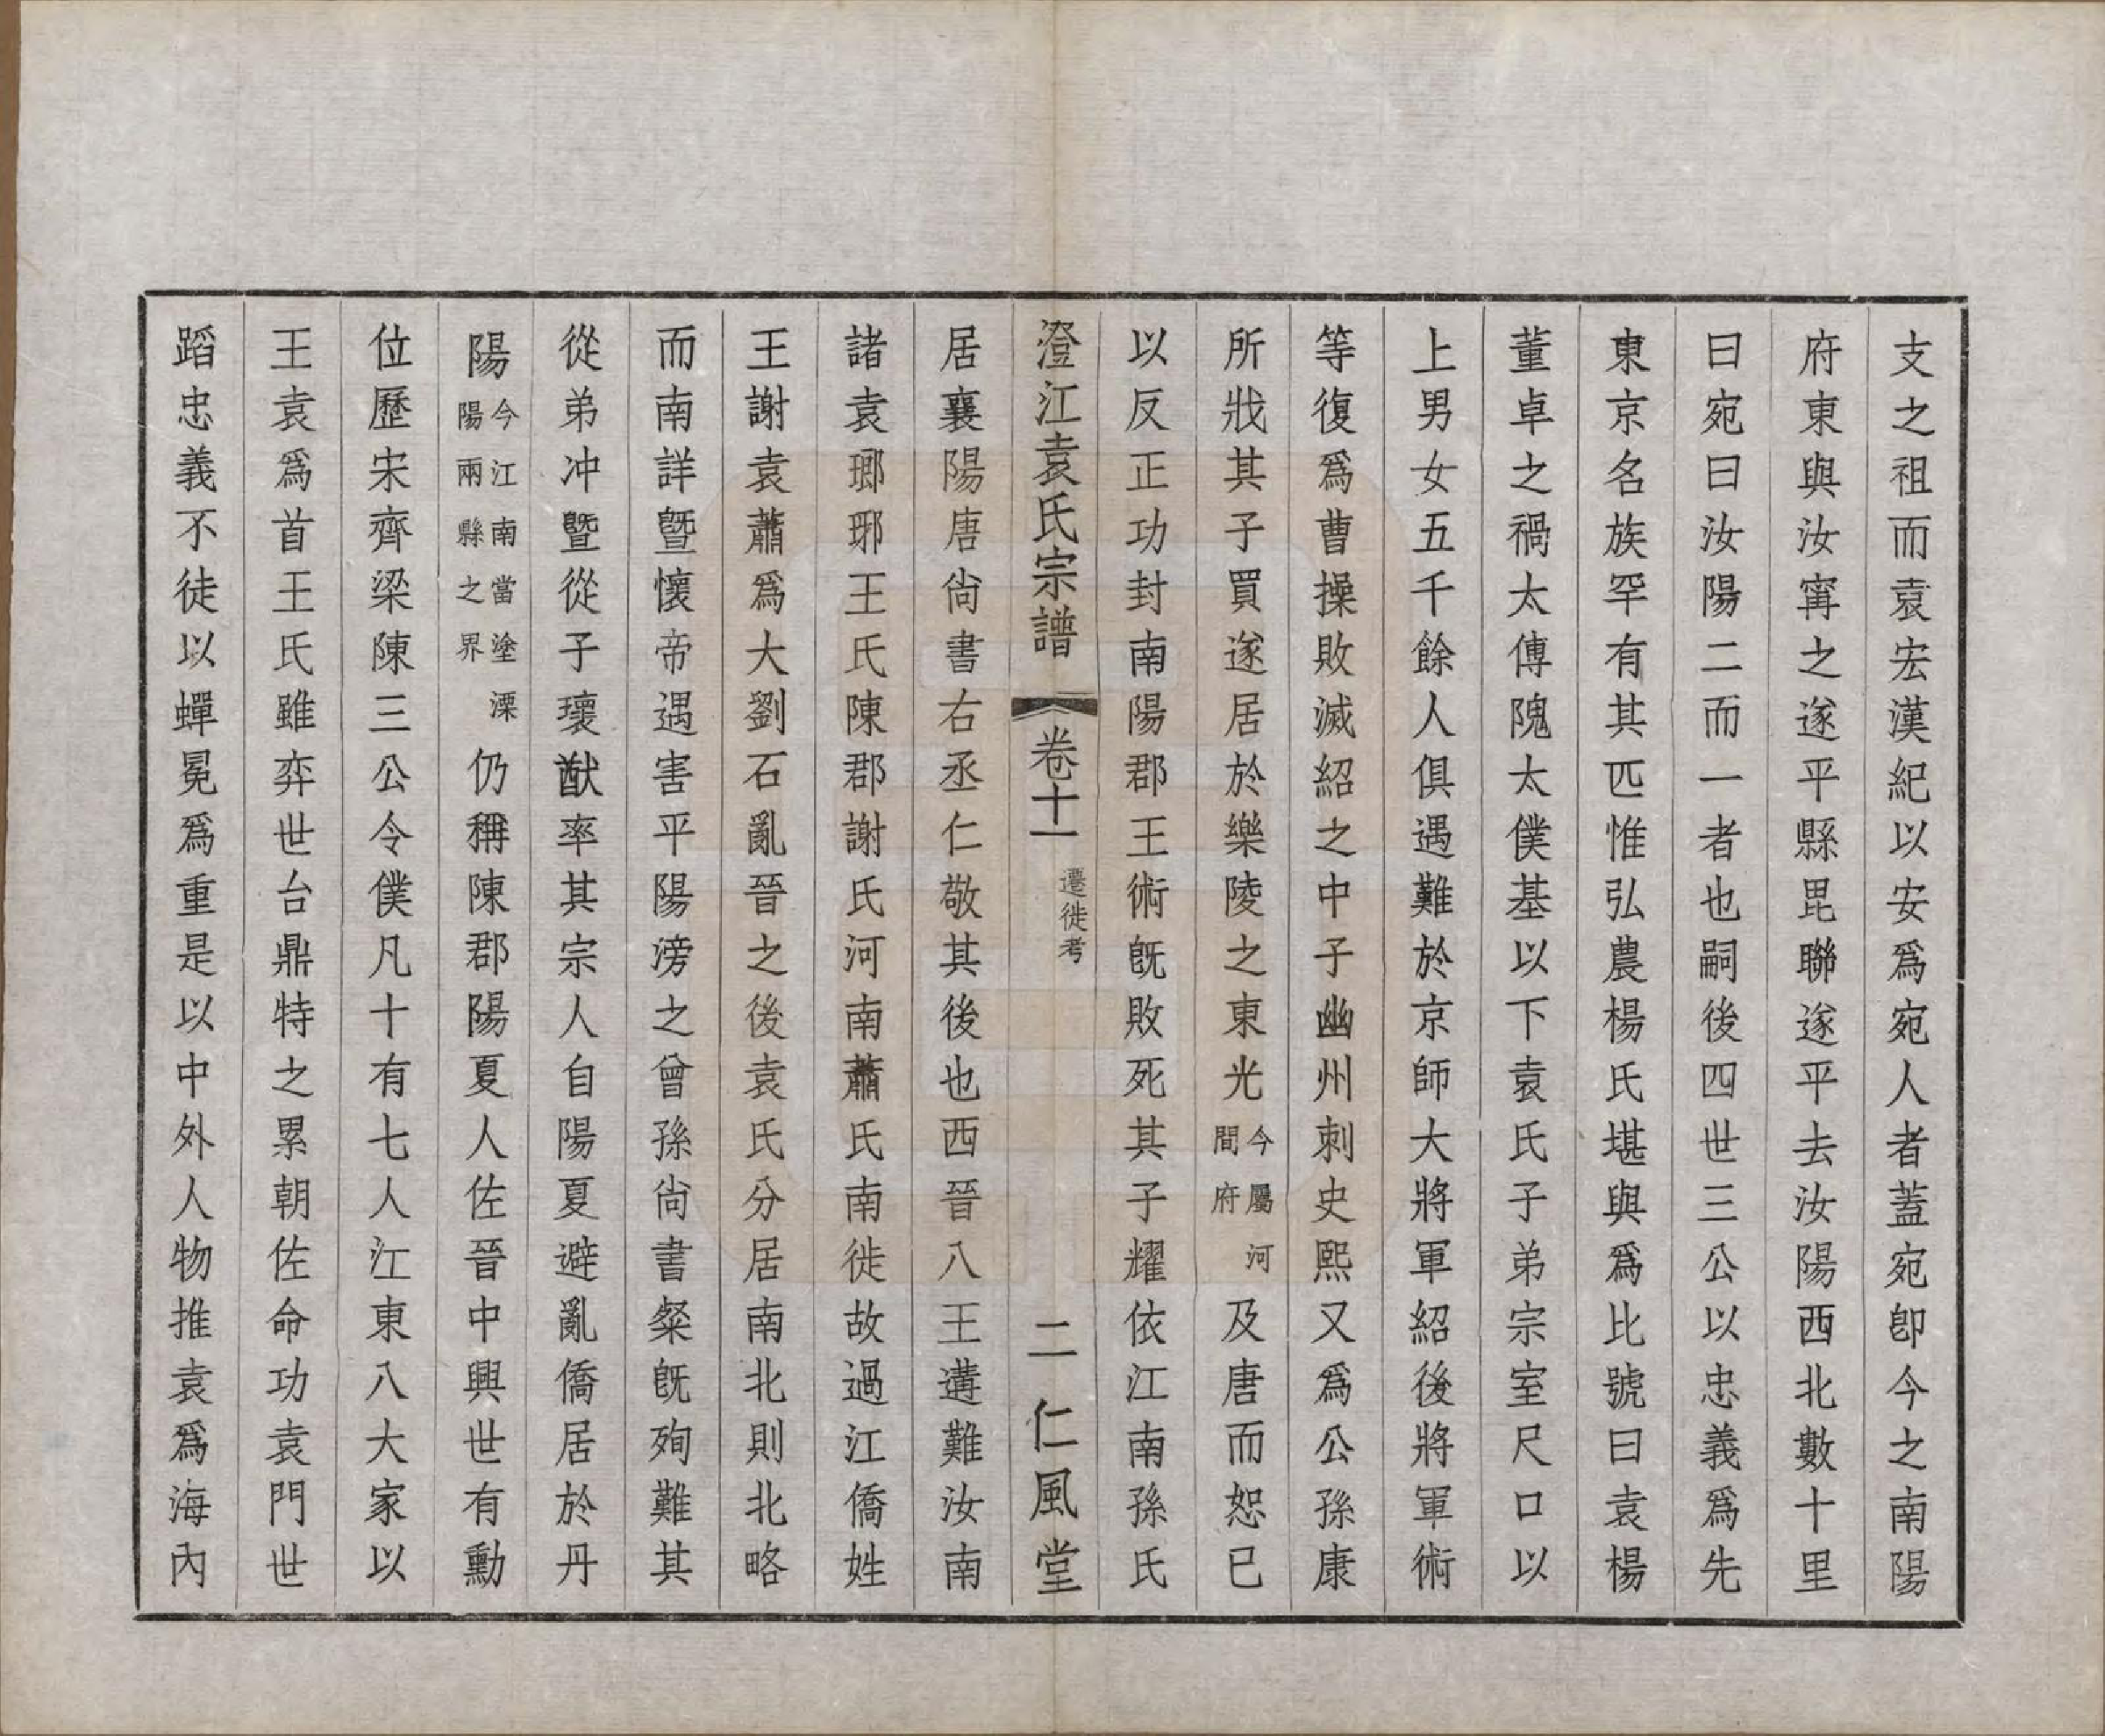 支之祖而袁宏漢紀以安爲宛人者蓋宛卽今之南陽
府東與汝甯之遂平縣毘聯遂平去汝陽西北數十里
曰宛曰汝陽二而一者也嗣後四世三公以忠義爲先
東京名族罕有其匹惟弘農楊氏堪與爲比號曰袁楊
董卓之禍太傅隗太僕基以下袁氏子弟宗室尺口以
上男女五千餘人俱遇難於京師大將軍紹後將軍術
等復爲曹操敗滅紹之中子幽州刺史熙又爲公孫康
所戕其子買遂居於樂陵之東光今屬河間府及唐而恕已
以反正功封南陽郡王術旣敗死其子耀依江南孫氏
澄江袁氏宗譜 卷十一 遷徙考 二 仁風堂
居襄陽唐尙書右丞仁敬其後也西晉八王遘難汝南
諸袁瑯琊王氏陳郡謝氏河南蕭氏南徙故過江僑姓
王謝袁蕭爲大劉石亂晉之後袁氏分居南北北則北略
而南詳曁懷帝遇害平陽滂之曾孫尙書粲旣殉難其
從弟冲曁從子瓌猷率其宗人自陽夏避亂僑居於丹
陽今江南當塗溧陽兩縣之界仍稱陳郡陽夏人佐晉中興世有勳
位歷宋齊梁陳三公令僕凡十有七人江東八大家以
王袁爲首王氏雖弈世台鼎特之累朝佐命功袁門世
蹈忠義不徒以蟬冕爲重是以中外人物推袁爲海內